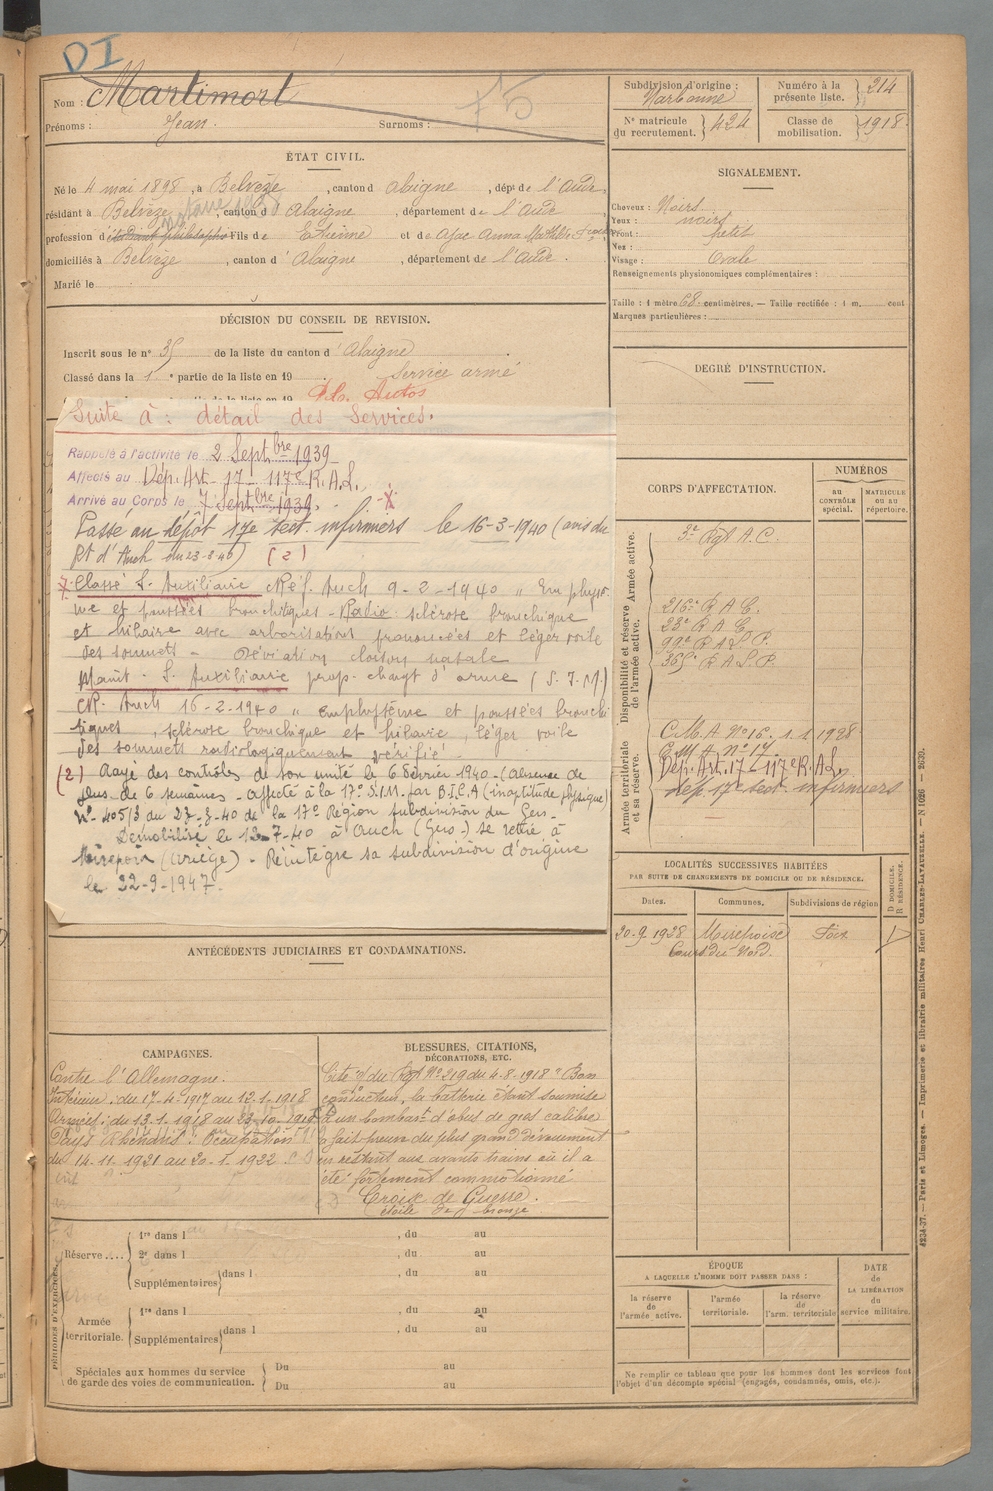 DI
Nom : Martimort
75
Prénoms : Jean. Surnoms :
ÉTAT CIVIL.
Né le 4 mai 1898, à Belvèze, canton d Alaigne, dépt de l'Aude,
résidant à Belvèze, canton d' Alaigne, département de l'Aude
profession d'étudiant philosophie Fils de Etienne et de Ajac Anna Mathilde
domiciliés à Belvèze, canton d' Alaigne, département de l'Aude.
Marié le
DÉCISION DU CONSEIL DE REVISION.
Inscrit sous le n° 35 de la liste du canton d' Alaigne.
Classé dans la 1e partie de la liste en 19 . Service armé
Suite à : détail des Services.
Rappelé à l'activité le 2 Septbre 1939
Affecté au Dép. Art. 17 - 117e R.A.L.
Arrivé au Corps le 7 Septbre 1939.
Passé au dépôt 17e sect. infirmiers le 16-3-1940 (ans du
Rt d'Auch du 23-3-40) (2)
Classé S. Auxiliaire CRéf. Auch 9-2-1940 " Emphysè-
me et poussées bronchitiques - Radio sclérose bronchique
et hilaire avec arborisations prononcées et léger voile
des sommets - Déviation cloison nasale
Maint. S. Auxiliaire prop. changt d'arme (S.I.M.)
CR. Auch 16-2-1940 " emphysème et poussées bronchi
tiques, sclérose bronchique et hilaire, léger voile
des sommets radiologiquement vérifié.
(2) Rayé des contrôles de son unité le 6 février 1940 - (absence de
plus de 6 semaines - affecté à la 17e S.I.M. par B.I.C.A (inaptitude physique)
N° 405/3 du 23-3-40 de la 17e Région subdivision du Gers-
Démobilisé le 12-7-40 à Auch (Gers-) se retire à
Mirepoix (Ariège) - Réintègre sa subdivision d'origine
le 22-9-1947.
ANTÉCÉDENTS JUDICIAIRES ET CONDAMNATIONS.
CAMPAGNES.
Contre l'Allemagne.
Intérieur : du 17-4-1917 au 12-1-1918
Armées : du 13-1-1918 au 23-10-1919
Pays Rhénans : Occupation
du 14-11-1921 au 20-1-1922
BLESSURES, CITATIONS,
DÉCORATIONS, ETC.
Cité à l'o/ du Rgt N° 219 du 4-8-1918 " Bon
conducteur, la batterie étant soumise
à un bombart d'obus de gros calibre
a fait preuve du plus grand dévouement
en restant aux avants trains où il a
été fortement commotionné
Croix de Guerre.
étoile de bronze
PÉRIODES D'EXERCICES.
Réserve .... 1re dans l , du au
2e dans l , du au
Supplémentaires dans l , du au
Armée territoriale. 1re dans l , du au
Supplémentaires dans l , du au
Spéciales aux hommes du service
de garde des voies de communication.
Du au
Du au
Subdivision d'origine : Narbonne
Numéro à la présente liste. 214
N° matricule du recrutement. 424
Classe de mobilisation. 1918.
SIGNALEMENT.
Cheveux : Noirs
Yeux : noirs
Front : petit
Nez :
Visage : Ovale
Renseignements physionomiques complémentaires :
Taille : 1 mètre 68 centimètres. — Taille rectifiée : 1 m. cent
Marques particulières :
DEGRÉ D'INSTRUCTION.
CORPS D'AFFECTATION.
NUMÉROS
AU CONTRÔLE spécial.
MATRICULE OU AU répertoire.
Armée active.
3e Rgt A.C.
Disponibilité et réserve de l'armée active.
216e R.A.C.
23e R.A.C.
99e R.A.L.P.
365e R.A.L.P.
Armée territoriale et sa réserve.
C.M.A N°16. 1.1.1928
C.M.A n°17.
Dép. Art. 17 - 117e R.A.L.
dép. 17e sect. infirmiers
LOCALITÉS SUCCESSIVES HABITÉES
PAR SUITE DE CHANGEMENTS DE DOMICILE OU DE RÉSIDENCE.
Dates. Communes. Subdivisions de région
D DOMICILE. R RÉSIDENCE.
20-9-1928 Mirepoise Foix D
Cours du Nord.
ÉPOQUE
A LAQUELLE L'HOMME DOIT PASSER DANS :
la réserve de l'armée active.
l'armée territoriale.
la réserve de l'arm. territoriale
DATE de LA LIBÉRATION du service militaire.
Ne remplir ce tableau que pour les hommes dont les services font
l'objet d'un décompte spécial (engagés, condamnés, omis, etc.).
4234-37. — Paris et Limoges. — Imprimerie et librairie militaires Henri CHARLES-LAVAUZELLE. — N 1026 — 2639.